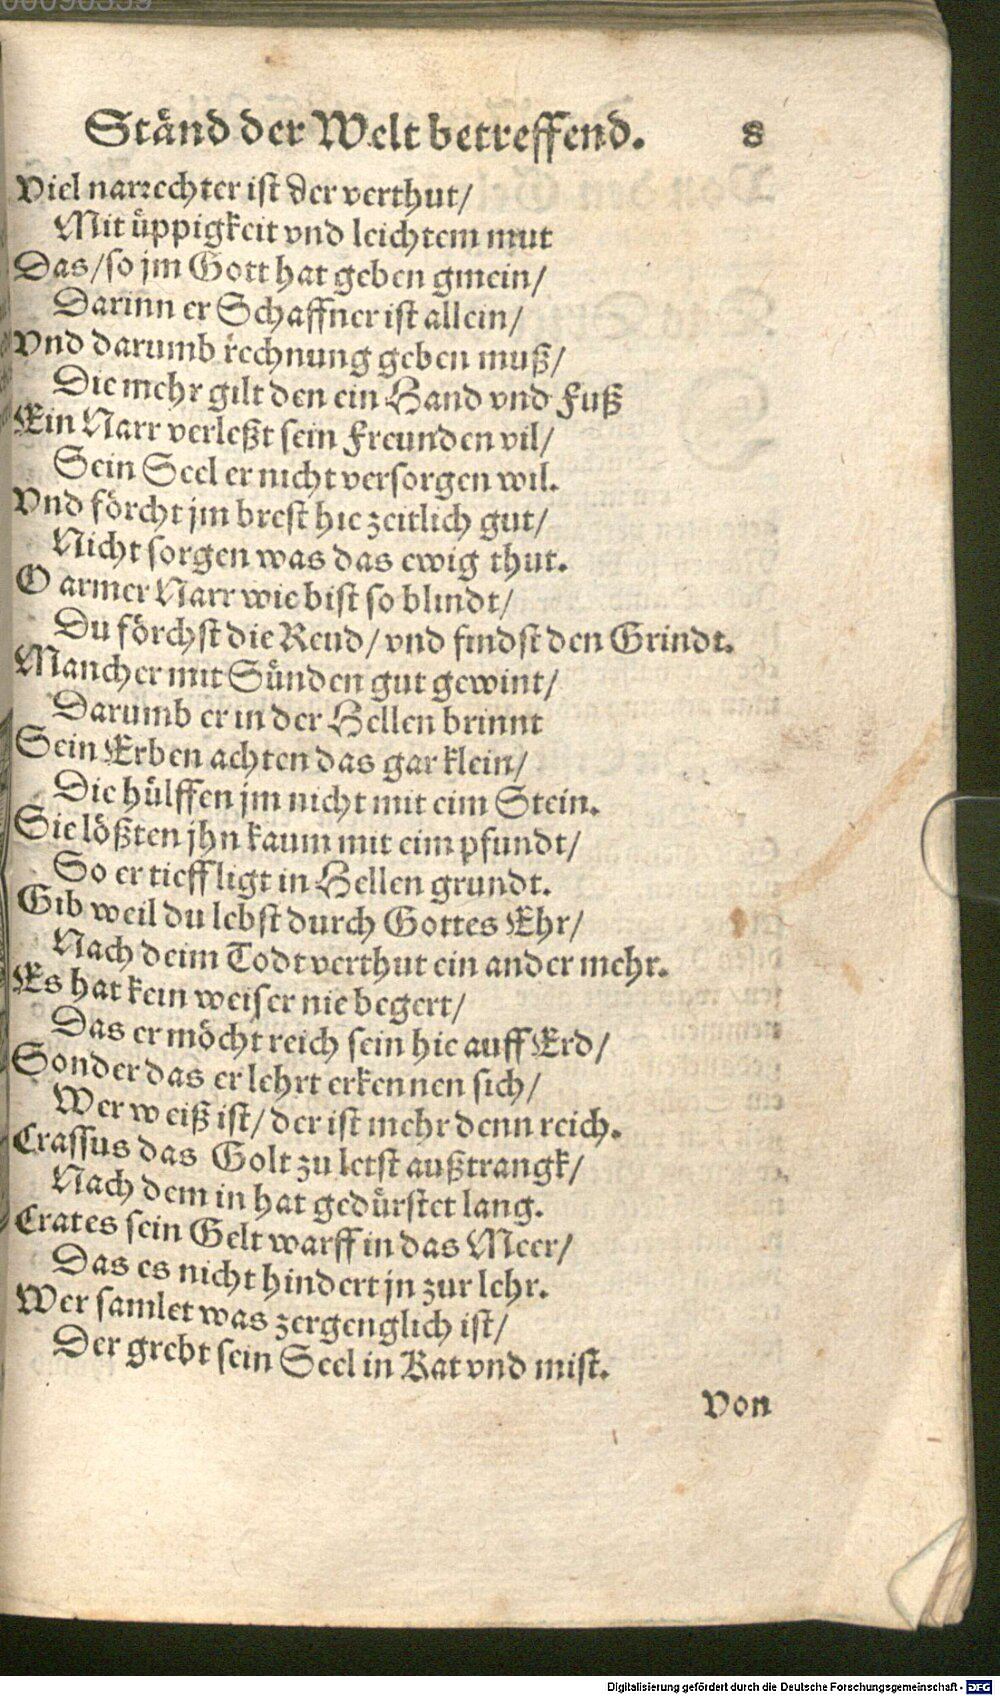 00090339
Ständ der Welt betreffend. 8
Viel narrechter ist der verthut/
Mit üppigkeit vnd leichtem mut
Das/so jm Gott hat geben gmein/
Darinn er Schaffner ist allein/
Vnd darumb rechnung geben muß/
Die mehr gilt den ein Hand vnd Fuß
Ein Narr verleßt sein Freunden vil/
Sein Seel er nicht versorgen wil.
Vnd förcht jm brest hie zeitlich gut/
Nicht sorgen was das ewig thut.
O armer Narr wie bist so blindt/
Du förchst die Reud/vnd findst den Grindt.
Mancher mit Sünden gut gewint/
Darumb er in der Hellen brinnt
Sein Erben achten das gar klein/
Die hülffen jm nicht mit eim Stein.
Sie lößten jhn kaum mit eim pfundt/
So er tieff ligt in Hellen grundt.
Gib weil du lebst durch Gottes Ehr/
Nach deim Todt verthut ein ander mehr.
Es hat kein weiser nie begert/
Das er möcht reich sein hie auff Erd/
Sonder das er lehrt erkennen sich/
Wer weiß ist/der ist mehr denn reich.
Crassus das Golt zu letst außtrangk/
Nach dem in hat gedürstet lang.
Crates sein Gelt warff in das Meer/
Das es nicht hindert jn zur lehr.
Wer samlet was zergenglich ist/
Der grebt sein Seel in Kat vnd mist.
Von
Digitalisierung gefördert durch die Deutsche Forschungsgemeinschaft - DFG